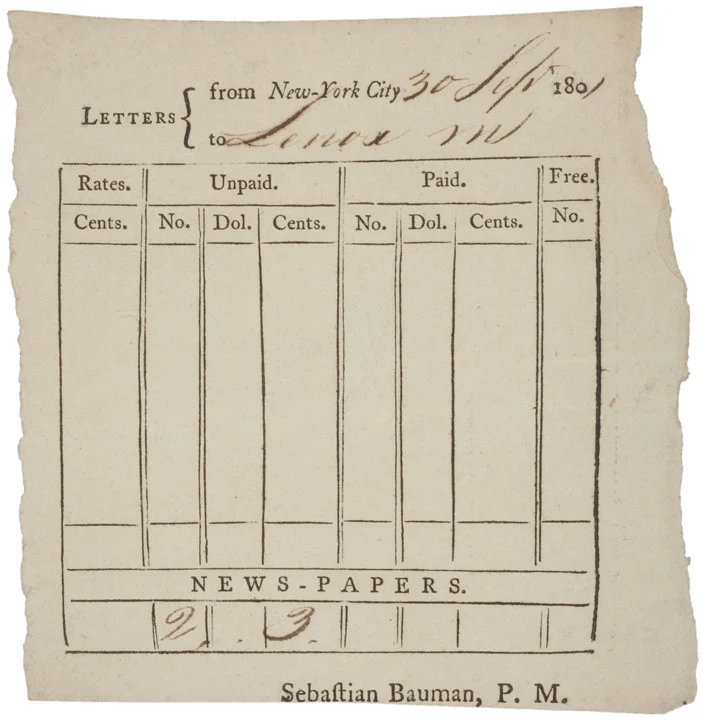 LETTERS { from New-York City 30 Sept 1801
to Lenox M
Rates. Unpaid. Paid. Free.
Cents. No. Dol. Cents. No. Dol. Cents. No.
NEWS-PAPERS.
2 . 3.
Sebaſtian Bauman, P. M.